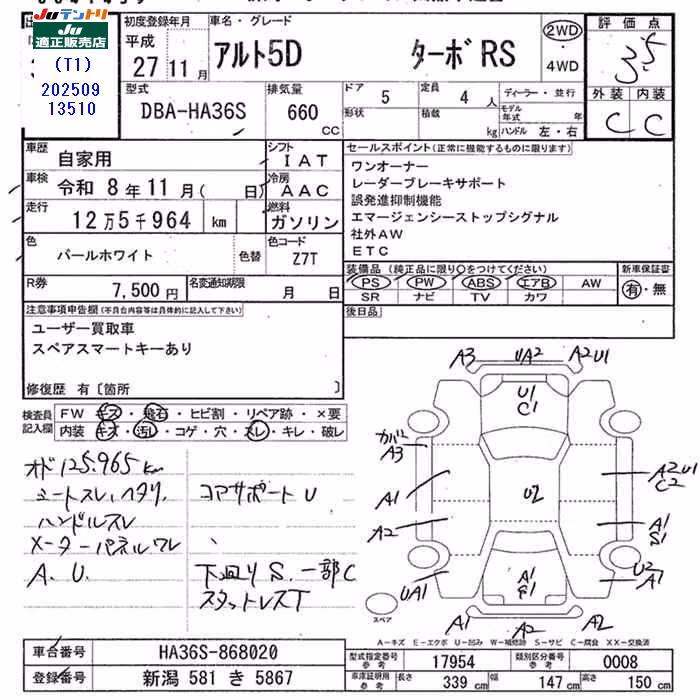 Juテントリ
Ju適正販売店
(T1)
202509
13510
初度登録年月
平成
27 11月
車名・グレード
アルト5D ターボRS
2WD
・
4WD
評価点
3.5
外装 内装
C C
型式
DBA-HA36S
排気量
660
CC
ドア
5
定員
4 人
ディーラー・並行
形状
積載
kg
モデル年式 年
ハンドル 左・右
車歴
自家用
シフト
IAT
車検
令和 8年11月( 日)
冷房
AAC
走行
12万5千964 km
燃料
ガソリン
色
パールホワイト
色替
色コード
Z7T
R券
7,500円
名変通知期限
月 日
セールスポイント(正常に機能するものに限ります)
ワンオーナー
レーダーブレーキサポート
誤発進抑制機能
エマージェンシーストップシグナル
社外AW
ETC
装備品(純正品に限り○をつけてください)
新車保証書
PS PW ABS エアB AW
有・無
SR ナビ TV カワ
後日品
注意事項申告欄(不具合内容等は具体的に記入して下さい)
ユーザー買取車
スペアスマートキーあり
修復歴 有〔箇所 〕
検査員記入欄
FW キズ・飛石・ヒビ割・リペア跡・×要
内装 キズ・汚レ・コゲ・穴・スレ・キレ・破レ
オド125.965km
シートスレ、ヘタリ
ハンドルスレ
メーターパネルワレ
A.U.
コアサポートU
下廻りS.一部C
スタッドレスT
A3 UA2 A2U1
U1
C1
カバー
A3
A1
A2
UA1
U2
A2U
C2
A1
S1
U2
A1
A1
F1
A1 A2 A2
スペア
A-キズ E-エクボ U-凹み W-補修跡 S-サビ C-腐食 XX-交換済
車台番号
HA36S-868020
登録番号
新潟 581 き 5867
型式指定番号
参考
17954
類別区分番号
参考
0008
車庫証明用
参考
長さ 339 cm
幅 147 cm
高さ 150 cm